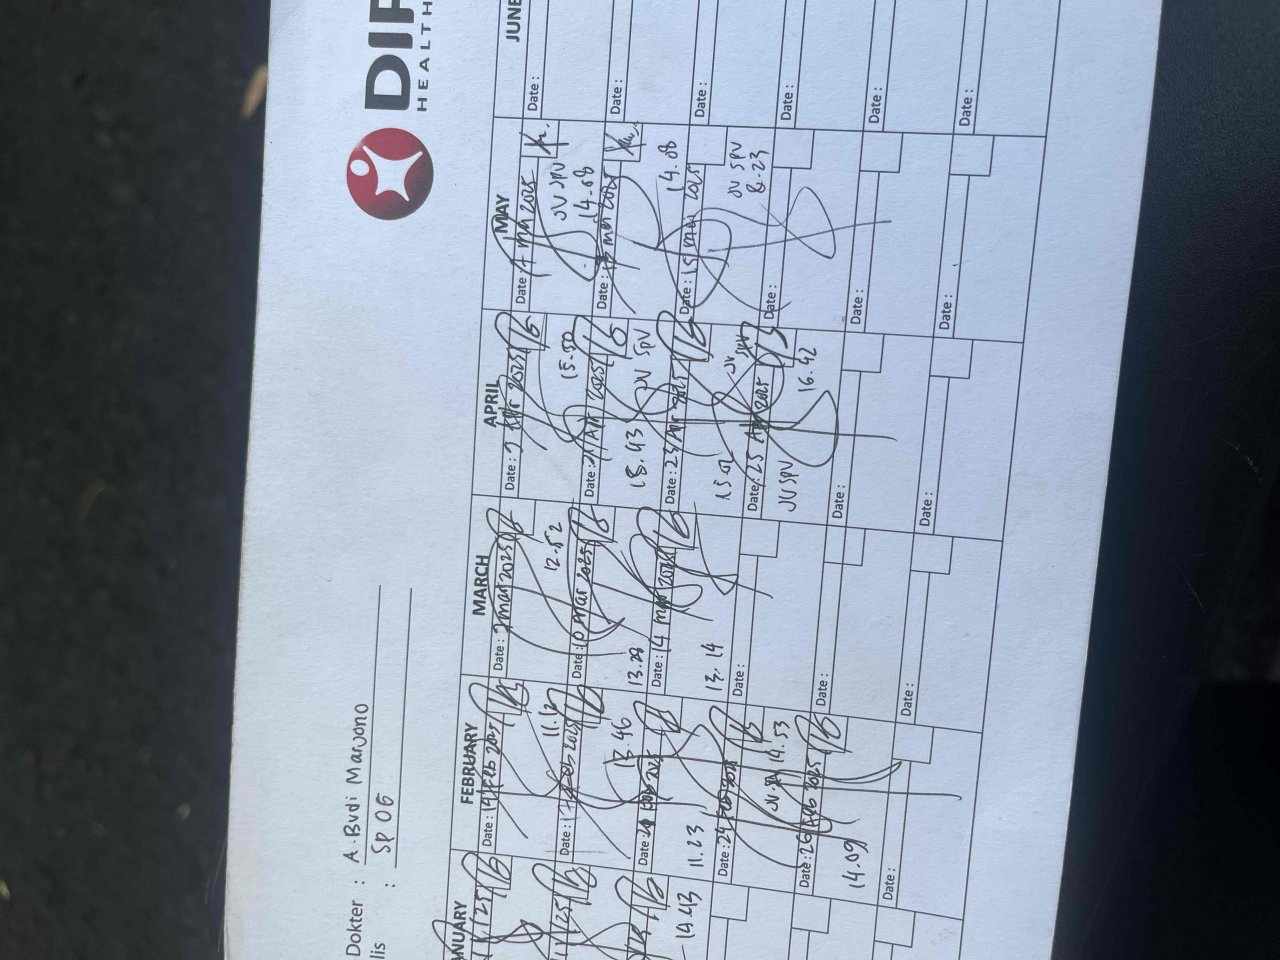 DIP
HEALTH
Dokter : A. Budi Marwono
lis : SP OG
NUARY
FEBRUARY
MARCH
APRIL
MAY
JUNE
14.43
Date : 14 Feb 2025
Date : 17 Feb 2025
13.46
Date : 2025
11.23
Date : 24 Feb 2025
14.53
Date : 26 Feb 2025
14.09
Date :
Date : mar 2025
12.52
Date : 10 Mar 2025
13.28
Date : 14 mar 2025
13.14
Date :
Date :
Date :
Date : Apr 2025
15.50
Date : 21 Apr 2025
18.43 JV SPV
Date : 23 Apr 2025
JV SPV
Date : 25 Apr 2025
JV SPV 16.42
Date :
Date :
Date : mei 2025
JV SPV
14.08
Date : 13 mei 2025
14.08
Date : 15 mei 2025
JV SPV
8.23
Date :
Date :
Date :
Date :
Date :
Date :
Date :
Date :
Date :